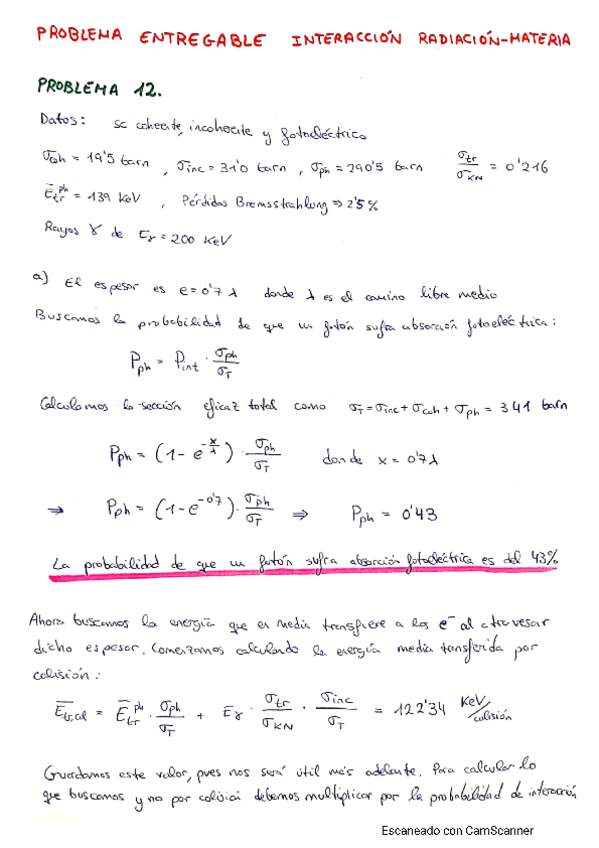 PROBLEMA ENTREGABLE INTERACCIÓN RADIACIÓN-MATERIA
PROBLEMA 12.
Datos: sc coherente, incoherente y fotoeléctrico
σcoh = 19'5 barn, σinc = 31'0 barn, σph = 290'5 barn σtr/σKN = 0'216
Ētr^ph = 139 KeV, Pérdidas Bremsstrahlung ⇒ 2'5%
Rayos γ de Eγ = 200 KeV
a) El espesor es e = 0'7 λ donde λ es el camino libre medio
Buscamos la probabilidad de que un fotón sufra absorción fotoeléctrica:
Pph = Pint · σph/σT
Calculamos la sección eficaz total como σT = σinc + σcoh + σph = 341 barn
Pph = (1 - e^(-x/λ)) · σph/σT donde x = 0'7λ
⇒ Pph = (1 - e^(-0'7)) · σph/σT ⇒ Pph = 0'43
La probabilidad de que un fotón sufra absorción fotoeléctrica es del 43%
Ahora buscamos la energía que en media transfiere a los e⁻ al atravesar
dicho espesor. Comenzamos calculando la energía media transferida por
colisión:
Ētr,col = Ētr^ph · σph/σT + Eγ · σtr/σKN · σinc/σT = 122'34 KeV/colisión
Guardamos este valor, pues nos será útil más adelante. Para calcular lo
que buscamos y no por colisión debemos multiplicar por la probabilidad de interacción
Escaneado con CamScanner